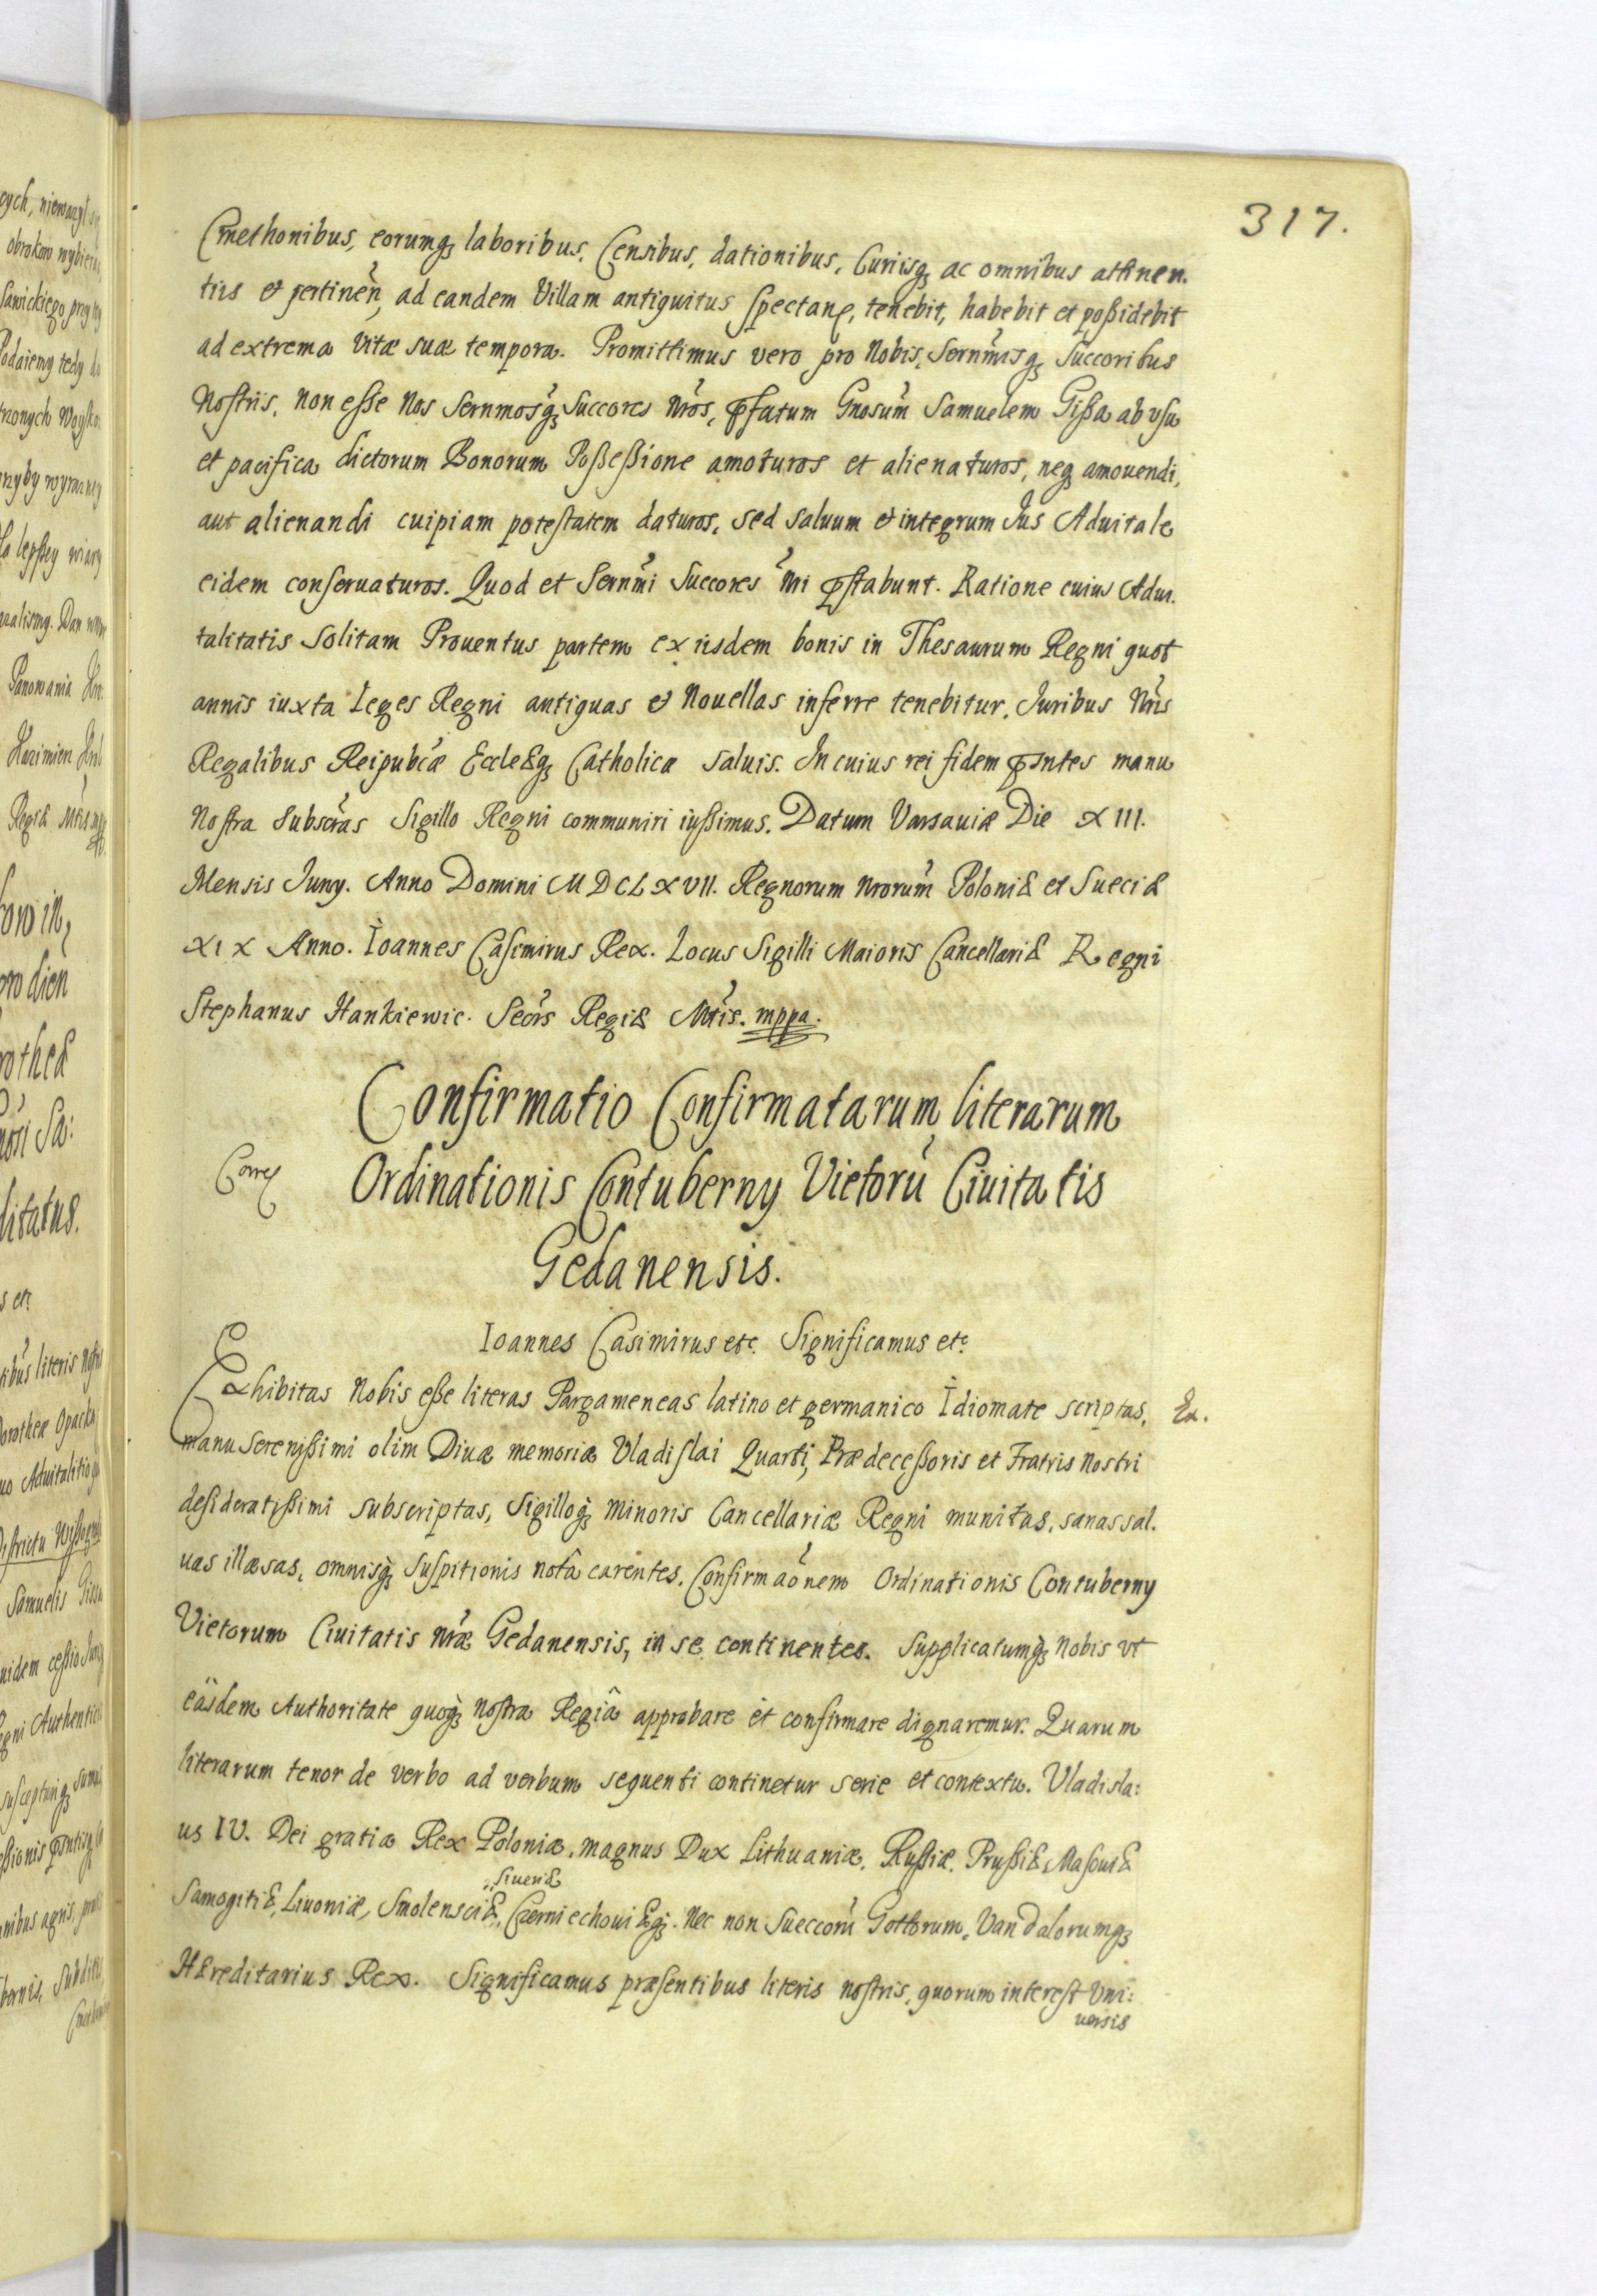 317.
Cmethonibus, eorumq3 laboribus, Censibus, dationibus, Curiisq3 ac omnibus attinen.
tiis et pertinen, ad eandem Villam antiquitus spectan, tenebit, habebit et poßidebit
ad extrema vitæ suæ tempora. Promittimus vero pro Nobis, Sernmisq3 Succoribus
Nostris, non esse Nos Sernmosq3 Succores Nros, pfatum Gnosum Samuelem Gißa ab usu
et pacifica dictorum Bonorum Poßeßione amoturos et alienaturos, neq3 amouendi,
aut alienandi cuipiam potestatem daturos, sed saluum et integrum Jus Aduitale
eidem conseruaturos. Quod et Sernmi Succores Nri pstabunt. Ratione cuius Adui.
talitatis solitam Prouentus partem ex iisdem bonis in Thesaurum Regni quot
annis iuxta Leges Regni antiquas et Nouellas inferre tenebitur. Juribus Nris
Regalibus Reipubcæ Ecclæq3 Catholicæ saluis. In cuius rei fidem pntes manu
Nostra Subscras Sigillo Regni communiri iußimus. Datum Varsauiæ Die XIII.
Mensis Juny. Anno Domini MDCLXVII. Regnorum Nrorum Poloniæ et Sueciæ
XIX Anno. Ioannes Casimirus Rex. Locus Sigilli Maioris Cancellariæ Regni
Stephanus Hankiewic. Secrs Regiæ Mtis. mppa.
Confirmatio Confirmatarum literarum
Ordinationis Contuberny Vietorú Ciuitatis
Gedanensis.
Ioannes Casimirus etc. Significamus etc.
Exhibitas Nobis eße literas Pargameneas latino et germanico Idiomate scriptas,
manu Serenißimi olim Diuæ memoriæ Vladislai Quarti, Prædeceßoris et Fratris Nostri
desideratißimi subscriptas, Sigilloq3 Minoris Cancellariæ Regni munitas, sanas sal.
uas illæsas, omnisq3 suspitionis notâ carentes, Confirmaonem Ordinationis Contuberny
Vietorum Ciuitatis Nræ Gedanensis, in se continentes. Supplicatumq3 Nobis ut
easdem Authoritate quoq3 Nostra Regiâ approbare et confirmare dignaremur. Quarum
literarum tenor de verbo ad verbum sequenti continetur serie et contextu. Vladisla:
us IV. Dei gratia Rex Poloniæ, magnus Dux Lithuaniæ, Rußiæ, Prußiæ, Masouiæ
Seueriæ
Samogitiæ, Liuoniæ, Smolensciæ, Czerniechouiæq3. Nec non Sueccorú Gottorum, Vandalorumq3
Hæreditarius Rex. Significamus præsentibus literis nostris, quorum interest Vni:
uersis